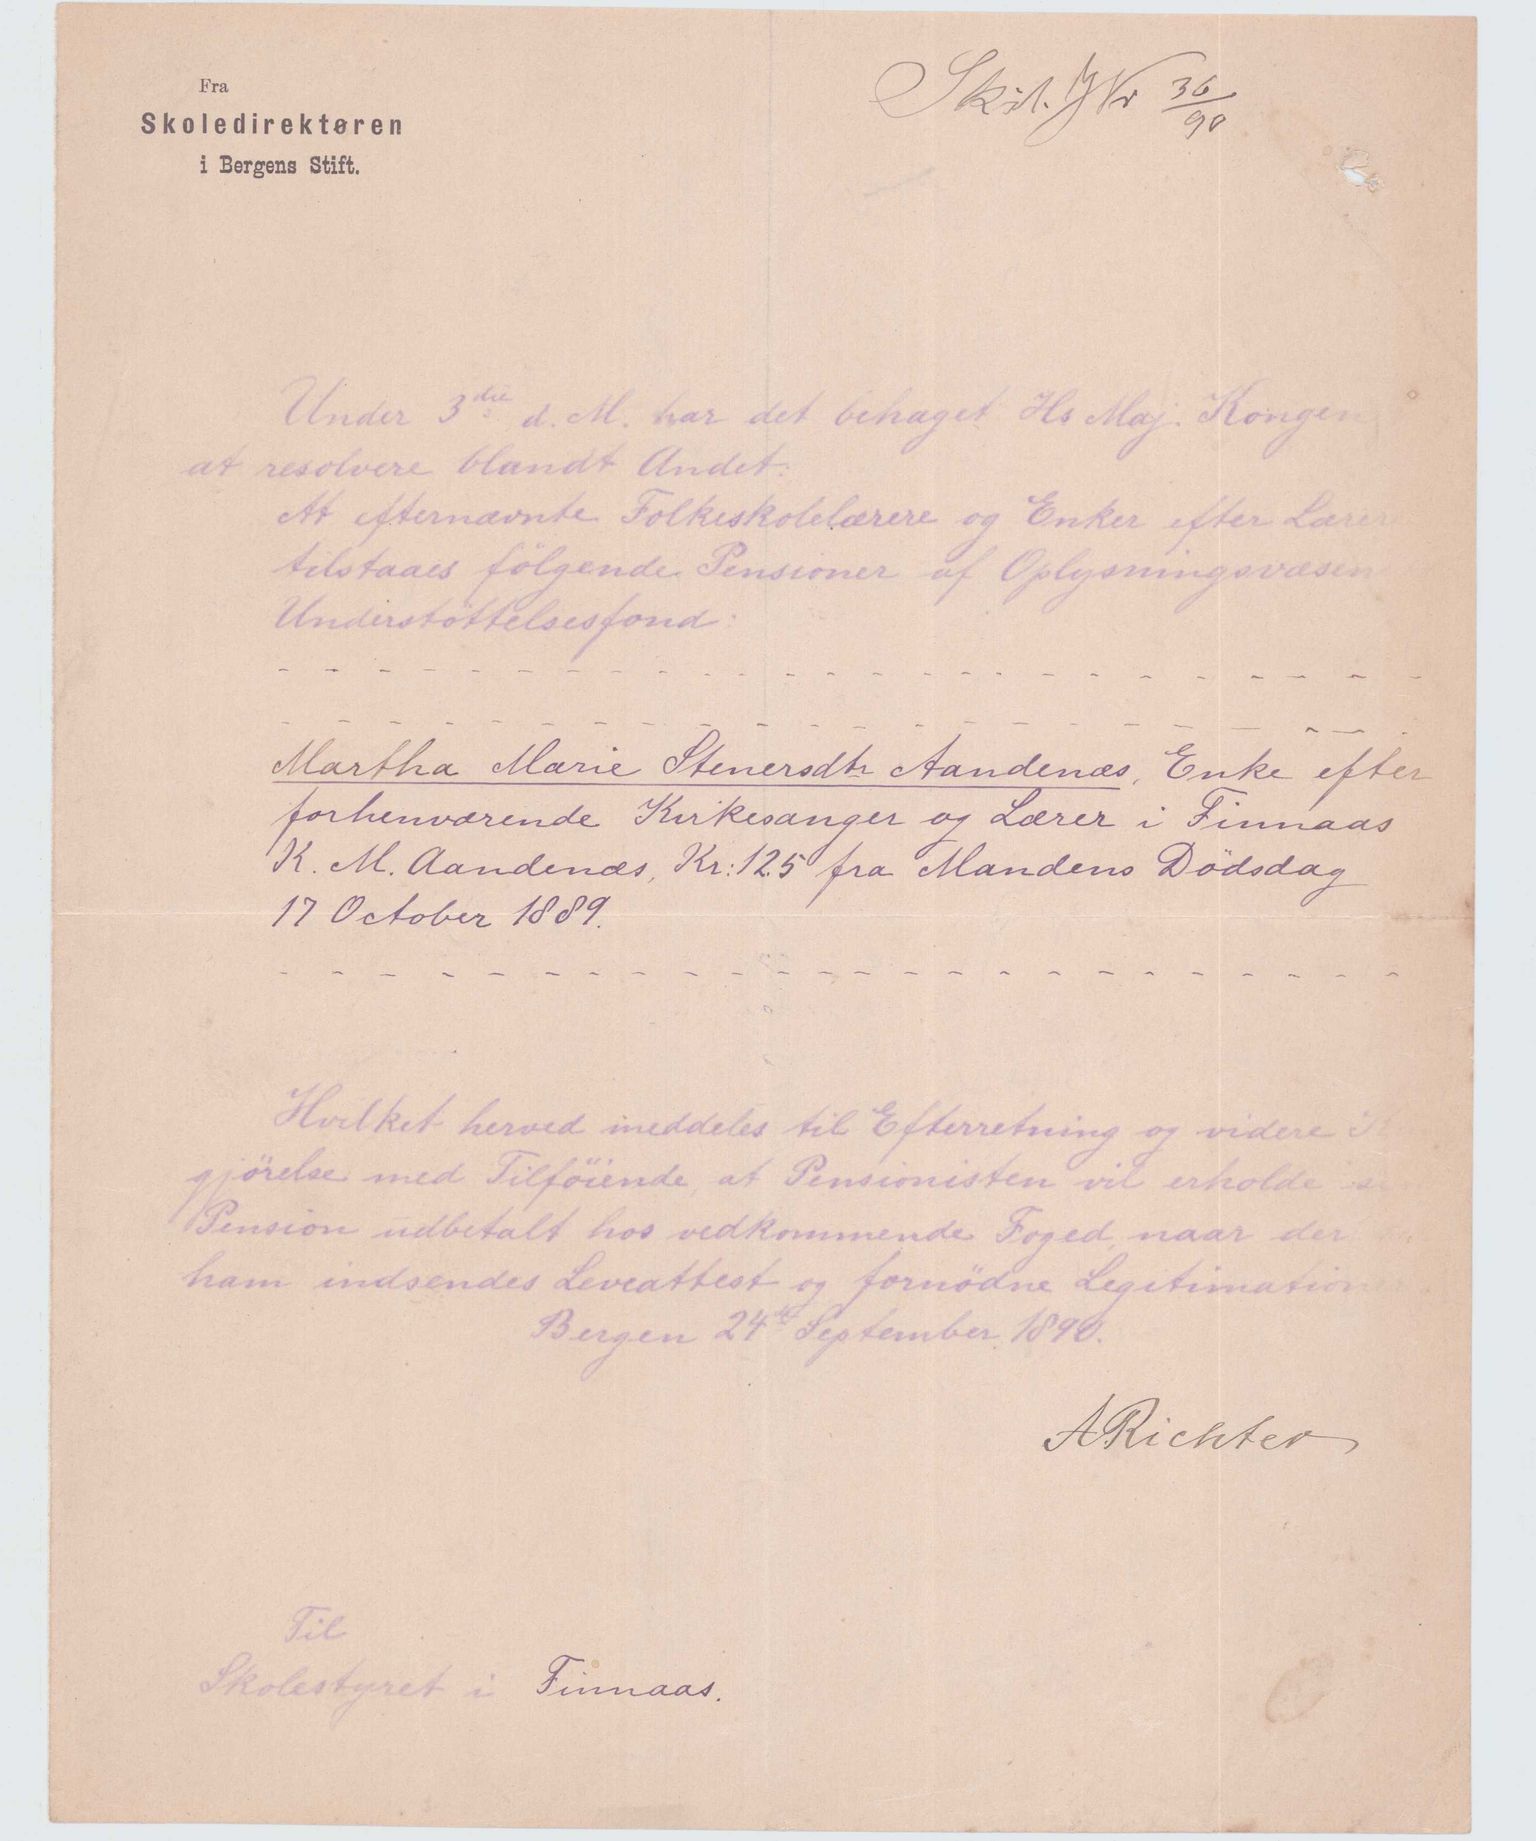 Fra
Skoledirektøren
i Bergens Stift.
Skst. J Nr 36/90
Under 3die d. M. har det behaget Hs Maj. Kongen
at resolvere blandt Andet:
At efternævnte Folkeskolelærere og Enker efter Lærere
tilstaaes fölgende Pensioner af Oplysningsvæsen
Understöttelsesfond:
Martha Marie Stenersdtr Aandenæs, Enke efter
forhenværende Kirkesanger og Lærer i Finnaas
K. M. Aandenæs, Kr: 125 fra Mandens Dödsdag
17 October 1889.
Hvilket herved meddeles til Efterretning og videre
gjörelse med Tilföiende, at Pensionisten vil erholde
Pension udbetalt hos vedkommende Foged, naar der
ham indsendes Leveattest og fornödne Legitimation
Bergen 24de September 1890.
A Richter
Til
Skolestyret i Finnaas.